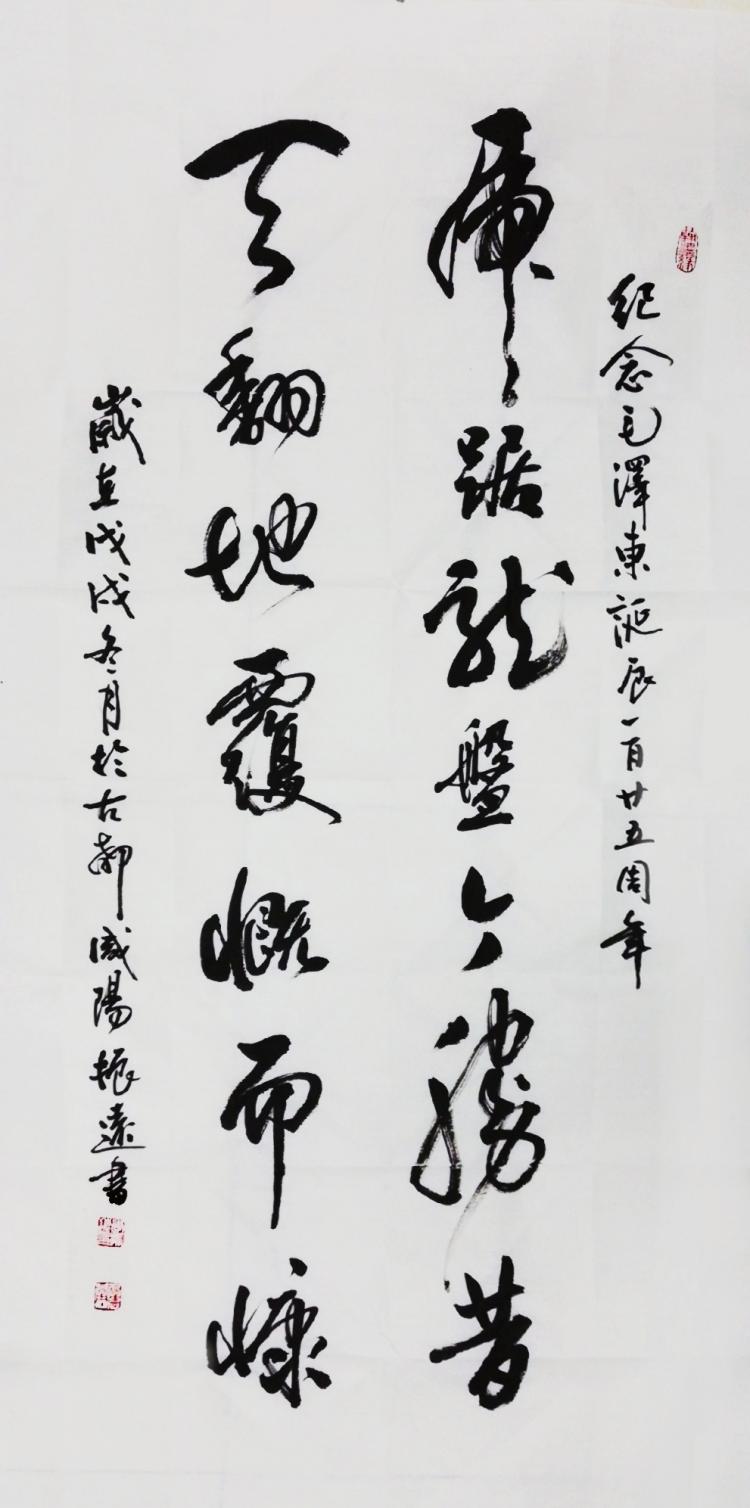 紀念毛澤東誕辰一百廿五周年
虎踞龍盤今勝昔
天翻地覆慨而慷
歲在戊戌冬月於古都咸陽振遠書